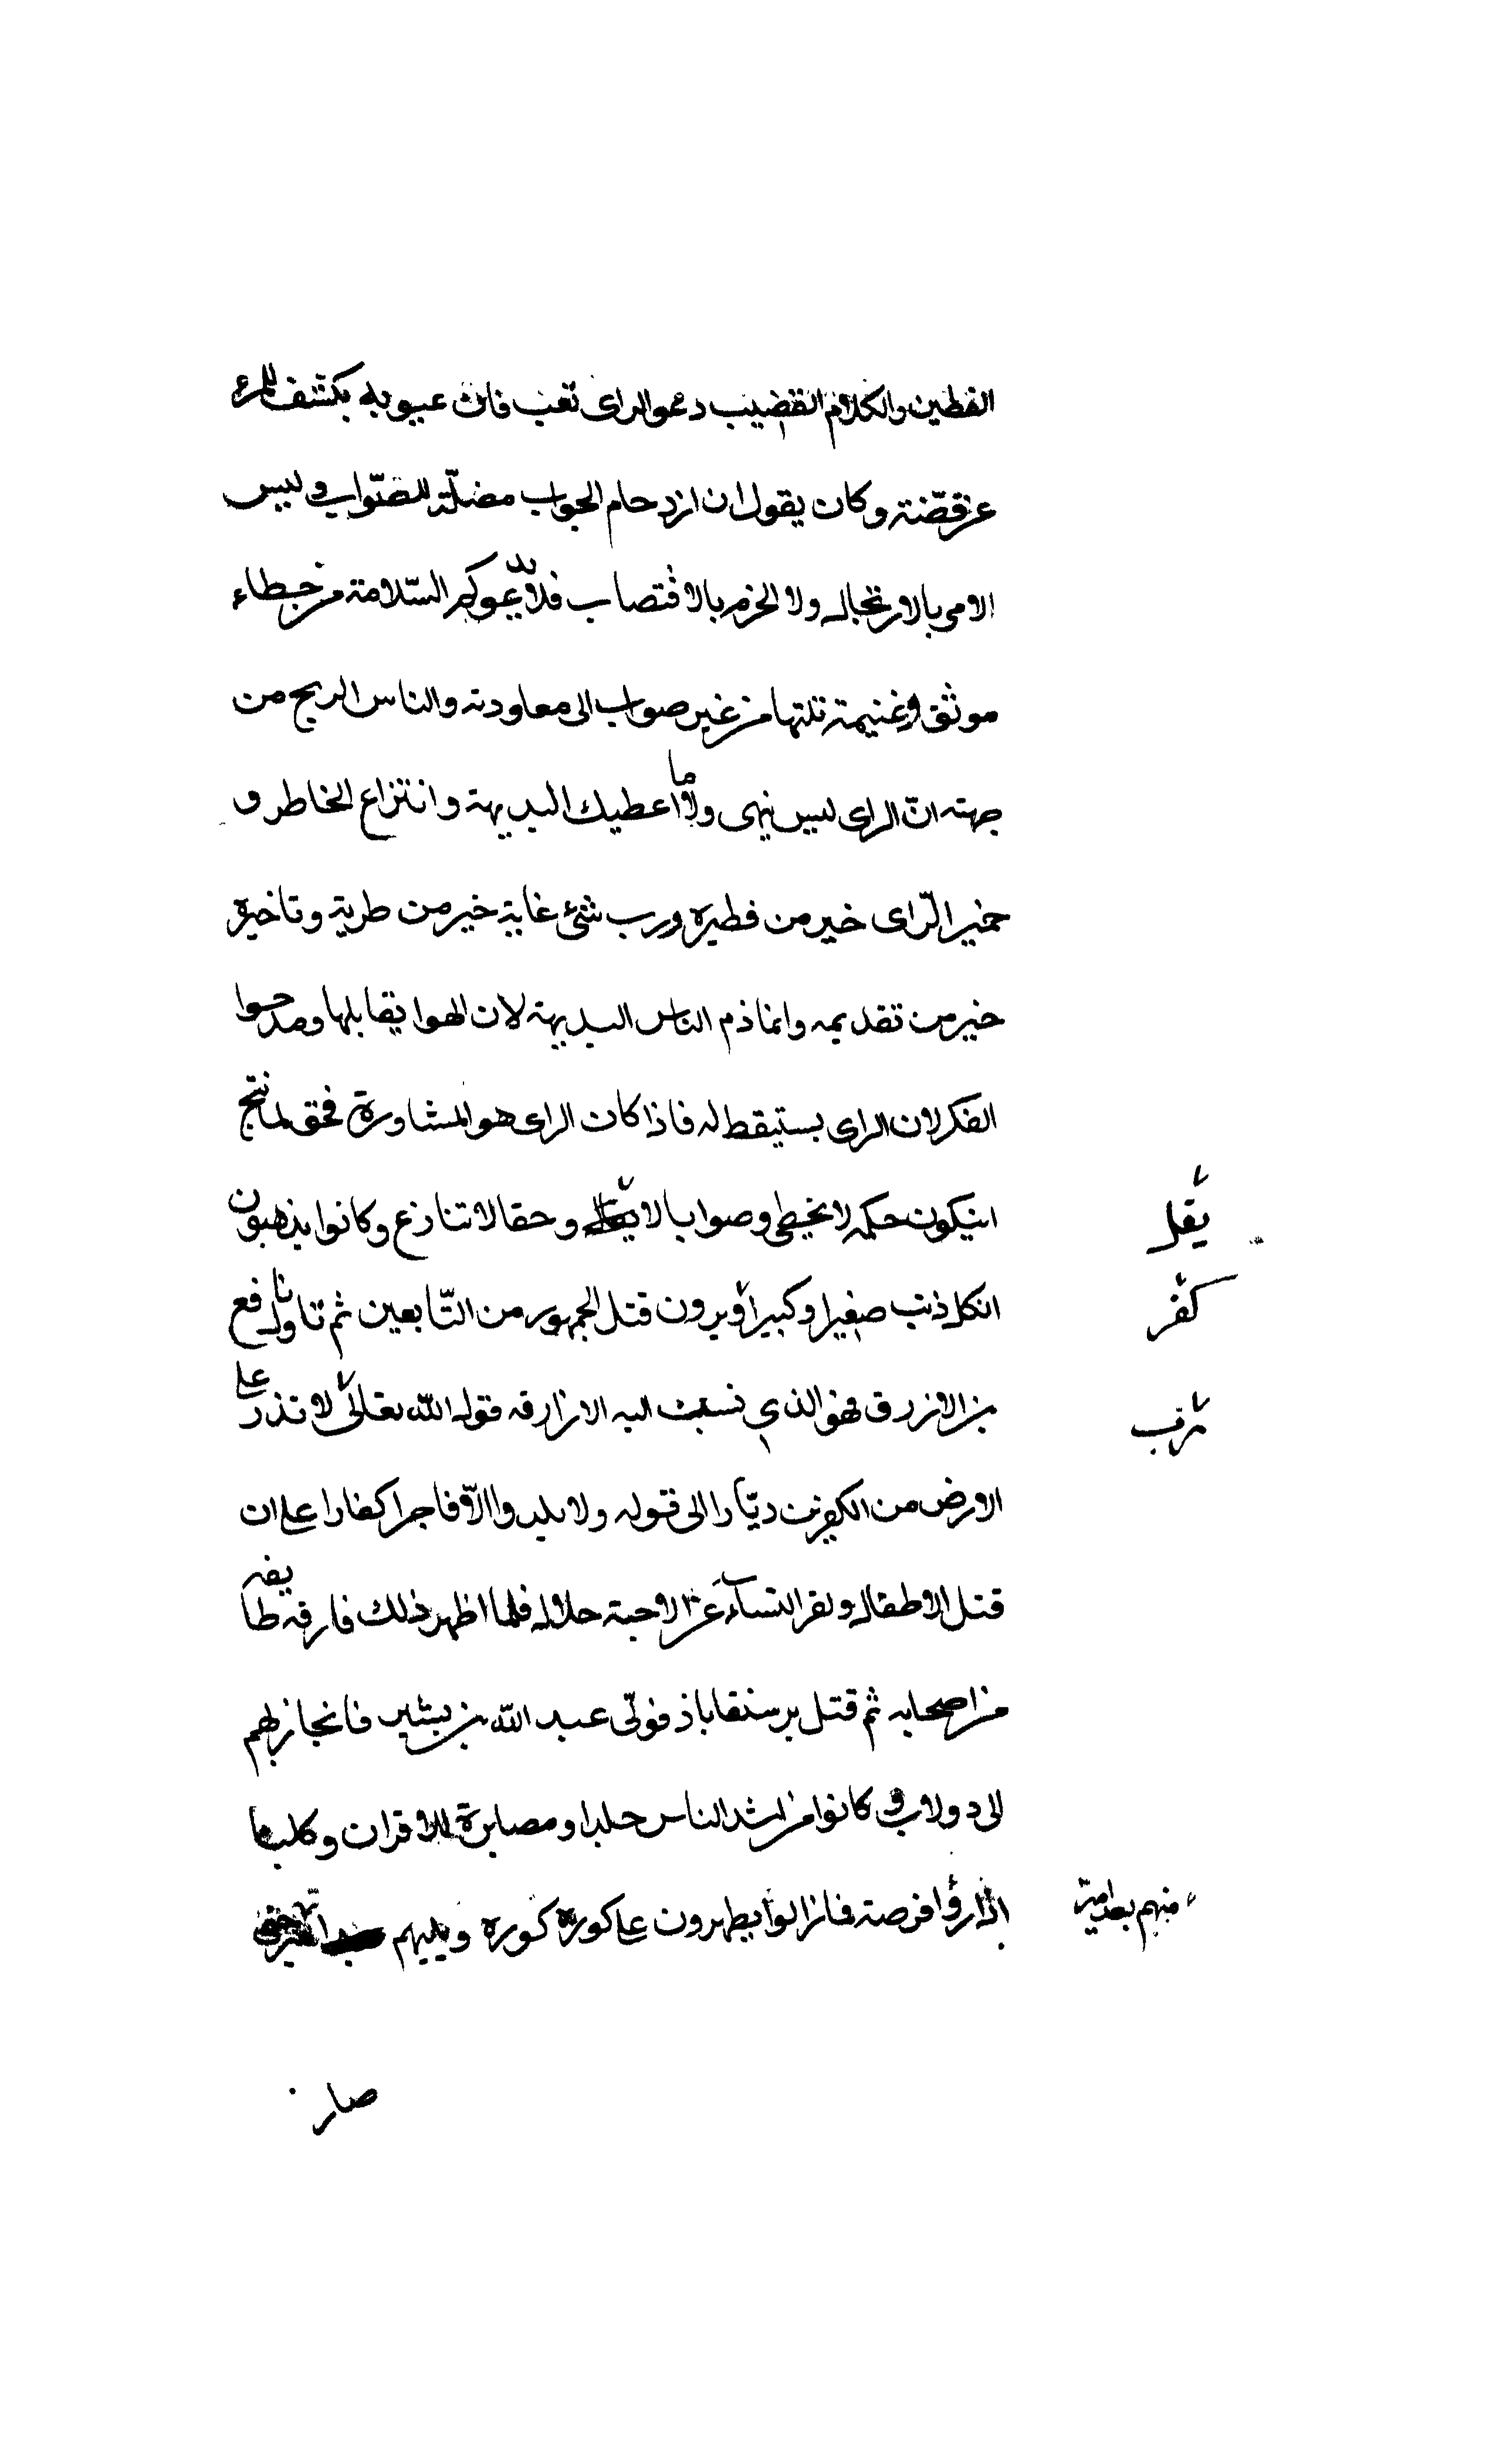 الفطين والكلام القضيب دعوا الراى تغب فان عيوبه يكشف للمرء
عن قضته وكان يقول ان ازدحام الجواب مضلّة للصّواب وليس
الامر بالارتجال ولا الحزم بالاقتصاب فلا يدعوكم السّلامة من خطاء
موثق وغنيمة نلتها من غير صواب الى معاودته والناس الربح من
جهته انّ الراى ليس نهى ولا ما اعطيك البديهة وانتزاع الخاطر و
خمير الرّاى خير من فطيره ورب شئ غابية خير من طرية وتاخيره
خير من تقديمه وانما ذم الناس البديهة لان الهوا يقابلها ومدحوا
الفكر لان الراى يستيقظ له فاذا كان الراى هو المشاورة فحق لما نتج
ان يكون حكمه لا يخطى وصوابا لا وحقا لا تنازع وكانوا يذهبون
يقل
ان كل ذنب صغيرا وكبيرا ويرون قتل الجمهور من التّابعين ثم تاول نافع
كفر
بن الازرق فهو الذى نسبت اليه الازارقه قوله الله تعالى لا تذر على
ربّ
الارض من الكفرين ديّارا الى قوله ولا يلدوا الّا فاجرا كفارا على ان
قتل الاطفال وبقر النساء عن الاجبة حلال فلما اظهر ذلك فارقه طايفه
من اصحابه ثم قتل برستقاباذ فولّى عبد الله بن بشير فانحاز بهم
الى دولاب وكانوا من اشد الناس جلدا ومصابرة للاقران وكلبا ما
اذا راوا فرصة فمازالوا يظهرون على كورة كورة ويليهم
منهم بعد امير
صار